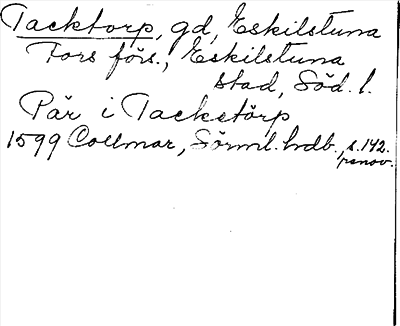 Tacktorp, gd, Eskilstuna
Fors förs., Eskilstuna
stad, Söd. l.
Pär i Tacketörp
1599 Collmar, Sörml. hdb., s. 142.